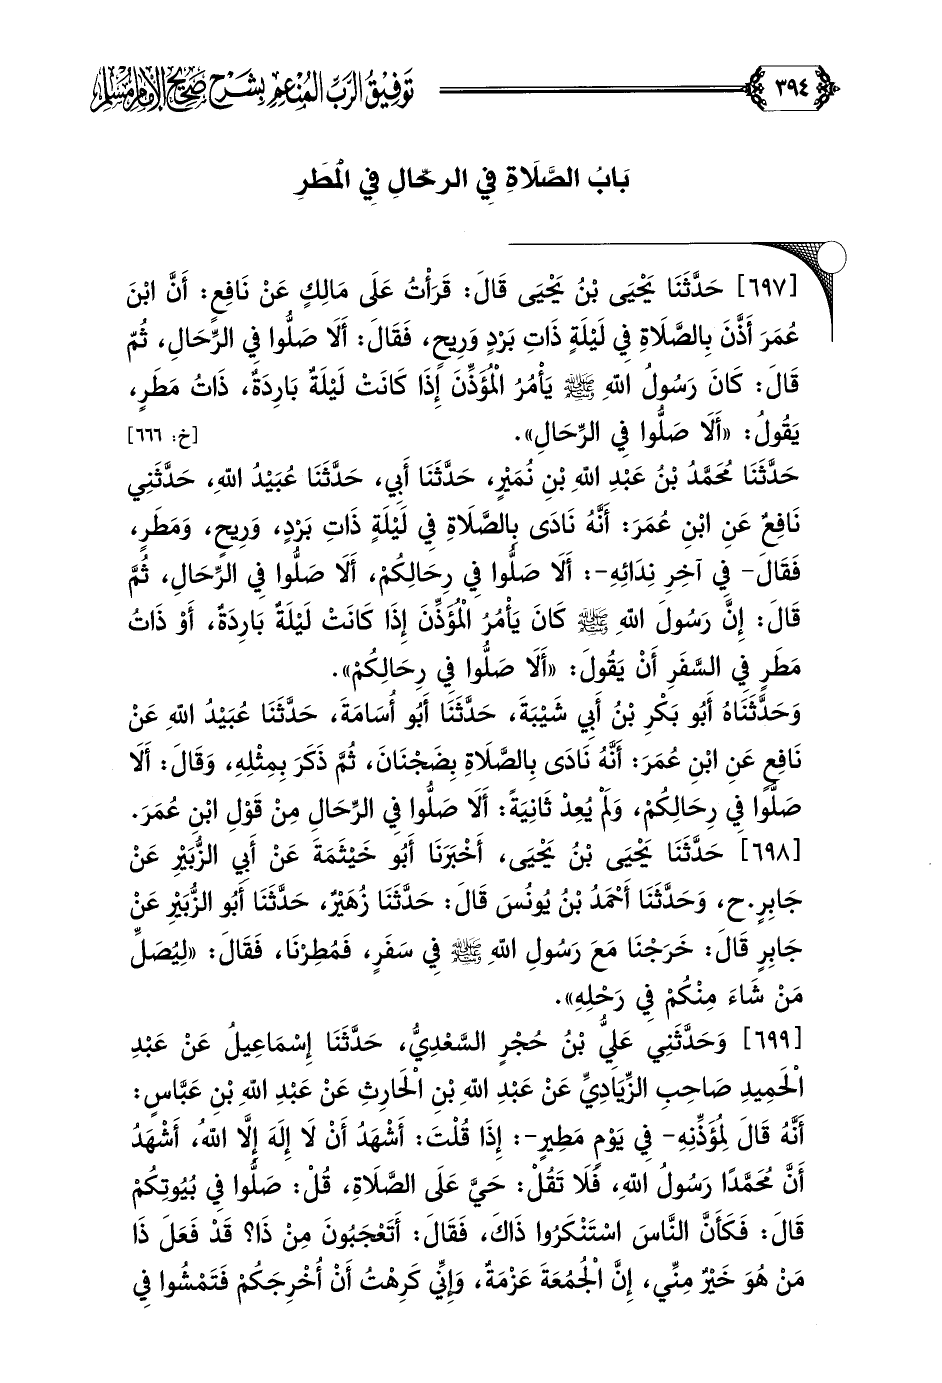 ٣٩٤ تَوْفِيقُ الرَّبِّ المُنْعِمِ بِشَرْحِ صَحِيحِ الإِمَامِ مُسْلِمٍ
بَابُ الصَّلَاةِ فِي الرِّحَالِ فِي الْمَطَرِ
[٦٩٧] حَدَّثَنَا يَحْيَى بْنُ يَحْيَى قَالَ: قَرَأْتُ عَلَى مَالِكٍ عَنْ نَافِعٍ: أَنَّ ابْنَ
عُمَرَ أَذَّنَ بِالصَّلَاةِ فِي لَيْلَةٍ ذَاتِ بَرْدٍ وَرِيحٍ، فَقَالَ: أَلَا صَلُّوا فِي الرِّحَالِ، ثُمَّ
قَالَ: كَانَ رَسُولُ اللهِ ﷺ يَأْمُرُ الْمُؤَذِّنَ إِذَا كَانَتْ لَيْلَةٌ بَارِدَةٌ، ذَاتُ مَطَرٍ،
يَقُولُ: «أَلَا صَلُّوا فِي الرِّحَالِ». [خ: ٦٦٦]
حَدَّثَنَا مُحَمَّدُ بْنُ عَبْدِ اللهِ بْنِ نُمَيْرٍ، حَدَّثَنَا أَبِي، حَدَّثَنَا عُبَيْدُ اللهِ، حَدَّثَنِي
نَافِعٌ عَنِ ابْنِ عُمَرَ: أَنَّهُ نَادَى بِالصَّلَاةِ فِي لَيْلَةٍ ذَاتِ بَرْدٍ، وَرِيحٍ، وَمَطَرٍ،
فَقَالَ- فِي آخِرِ نِدَائِهِ-: أَلَا صَلُّوا فِي رِحَالِكُمْ، أَلَا صَلُّوا فِي الرِّحَالِ، ثُمَّ
قَالَ: إِنَّ رَسُولَ اللهِ ﷺ كَانَ يَأْمُرُ الْمُؤَذِّنَ إِذَا كَانَتْ لَيْلَةٌ بَارِدَةٌ، أَوْ ذَاتُ
مَطَرٍ فِي السَّفَرِ أَنْ يَقُولَ: «أَلَا صَلُّوا فِي رِحَالِكُمْ».
وَحَدَّثَنَاهُ أَبُو بَكْرِ بْنُ أَبِي شَيْبَةَ، حَدَّثَنَا أَبُو أُسَامَةَ، حَدَّثَنَا عُبَيْدُ اللهِ عَنْ
نَافِعٍ عَنِ ابْنِ عُمَرَ: أَنَّهُ نَادَى بِالصَّلَاةِ بِضَجْنَانَ، ثُمَّ ذَكَرَ بِمِثْلِهِ، وَقَالَ: أَلَا
صَلُّوا فِي رِحَالِكُمْ، وَلَمْ يُعِدْ ثَانِيَةً: أَلَا صَلُّوا فِي الرِّحَالِ مِنْ قَوْلِ ابْنِ عُمَرَ.
[٦٩٨] حَدَّثَنَا يَحْيَى بْنُ يَحْيَى، أَخْبَرَنَا أَبُو خَيْثَمَةَ عَنْ أَبِي الزُّبَيْرِ عَنْ
جَابِرٍ.ح، وَحَدَّثَنَا أَحْمَدُ بْنُ يُونُسَ قَالَ: حَدَّثَنَا زُهَيْرٌ، حَدَّثَنَا أَبُو الزُّبَيْرِ عَنْ
جَابِرٍ قَالَ: خَرَجْنَا مَعَ رَسُولِ اللهِ ﷺ فِي سَفَرٍ، فَمُطِرْنَا، فَقَالَ: «لِيُصَلِّ
مَنْ شَاءَ مِنْكُمْ فِي رَحْلِهِ».
[٦٩٩] وَحَدَّثَنِي عَلِيُّ بْنُ حُجْرٍ السَّعْدِيُّ، حَدَّثَنَا إِسْمَاعِيلُ عَنْ عَبْدِ
الْحَمِيدِ صَاحِبِ الزِّيَادِيِّ عَنْ عَبْدِ اللهِ بْنِ الْحَارِثِ عَنْ عَبْدِ اللهِ بْنِ عَبَّاسٍ:
أَنَّهُ قَالَ لِمُؤَذِّنِهِ- فِي يَوْمٍ مَطِيرٍ-: إِذَا قُلْتَ: أَشْهَدُ أَنْ لَا إِلَهَ إِلَّا اللهُ، أَشْهَدُ
أَنَّ مُحَمَّدًا رَسُولُ اللهِ، فَلَا تَقُلْ: حَيَّ عَلَى الصَّلَاةِ، قُلْ: صَلُّوا فِي بُيُوتِكُمْ
قَالَ: فَكَأَنَّ النَّاسَ اسْتَنْكَرُوا ذَاكَ، فَقَالَ: أَتَعْجَبُونَ مِنْ ذَا؟ قَدْ فَعَلَ ذَا
مَنْ هُوَ خَيْرٌ مِنِّي، إِنَّ الْجُمُعَةَ عَزْمَةٌ، وَإِنِّي كَرِهْتُ أَنْ أُخْرِجَكُمْ فَتَمْشُوا فِي